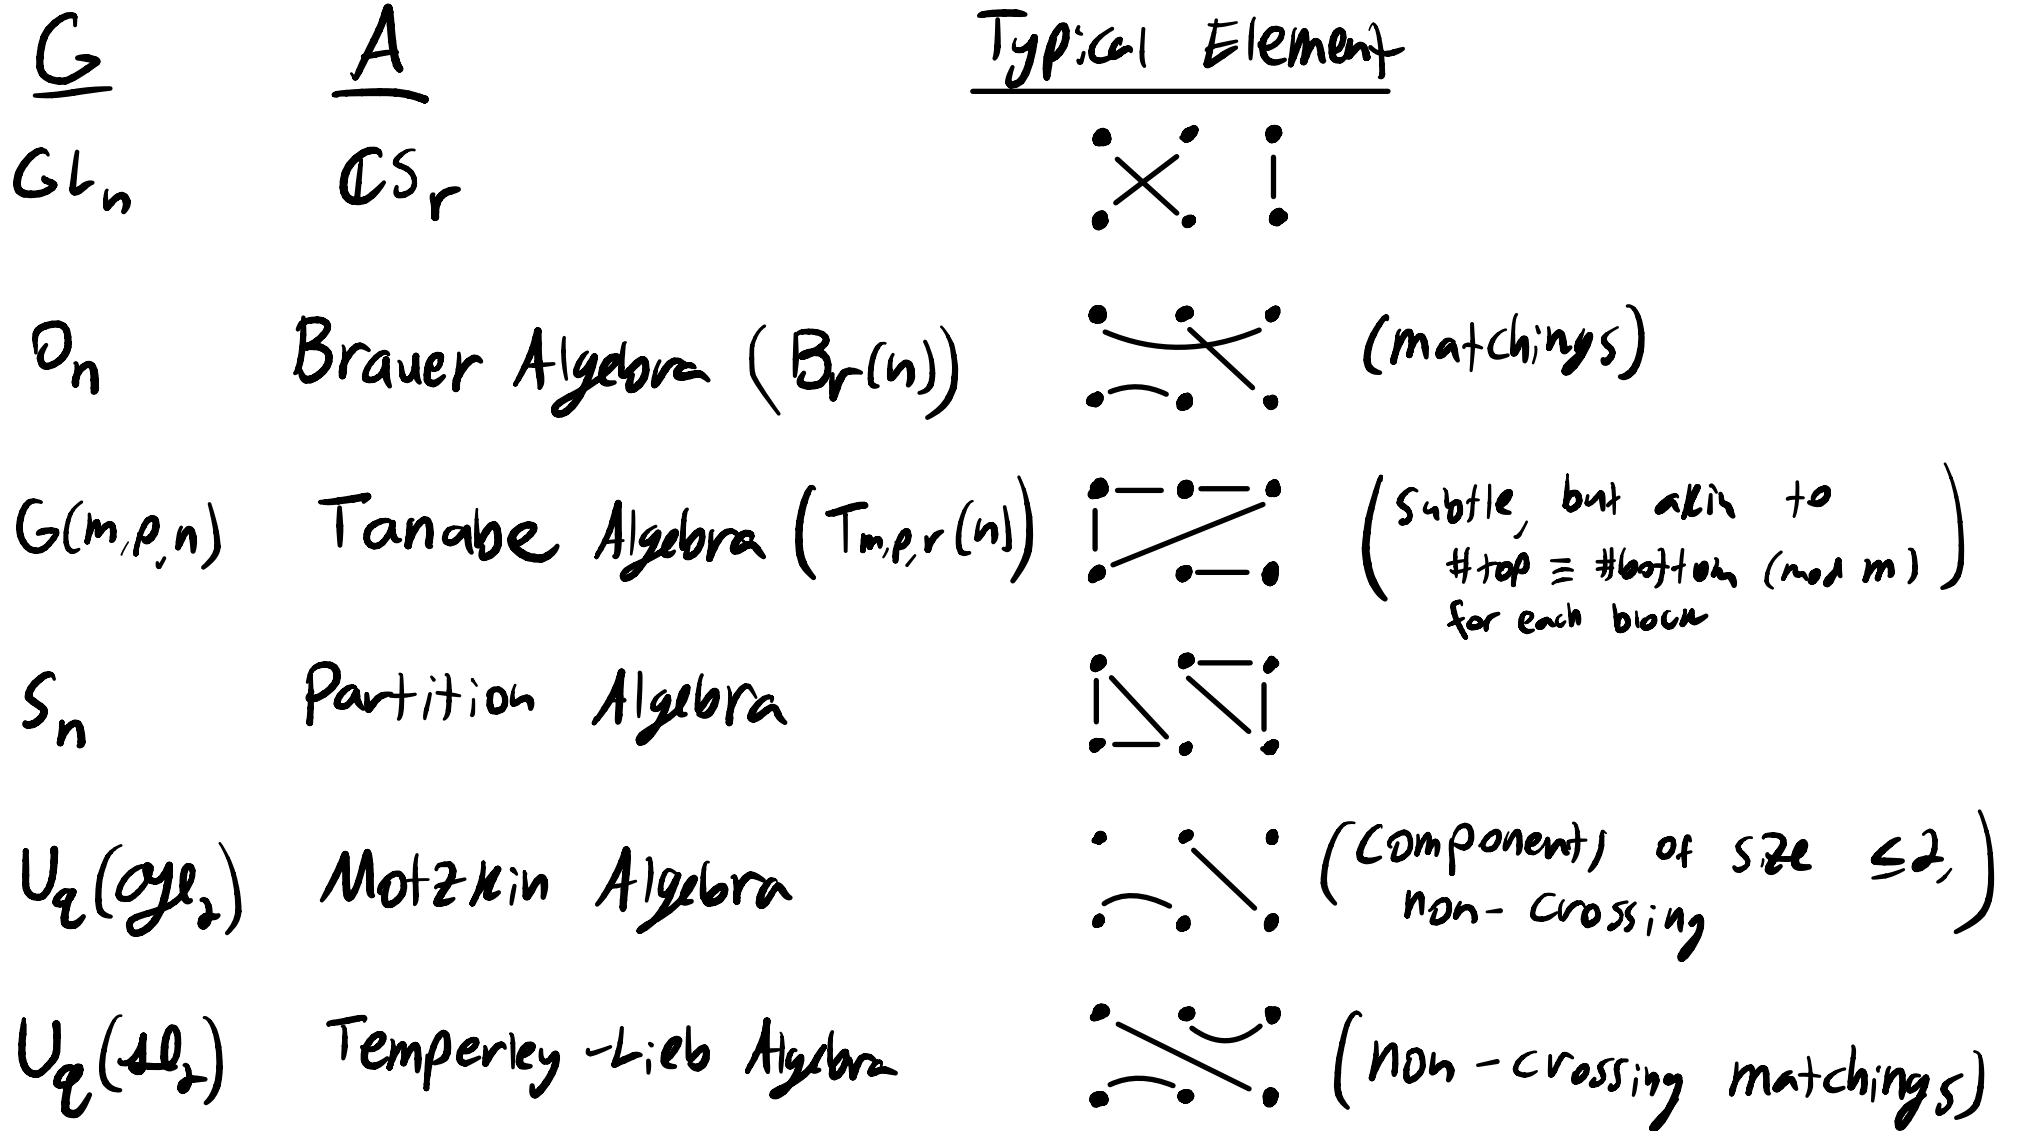 G A Typical Element
GLₙ ℂSᵣ
Oₙ Brauer Algebra (Bᵣ(n)) (matchings)
G(m,p,n) Tanabe Algebra (T_{m,p,r}(n)) (subtle, but akin to
#top ≡ #bottom (mod m)
for each block)
Sₙ Partition Algebra
U_q(𝔤𝔩₂) Motzkin Algebra (components of size ≤2,
non-crossing)
U_q(𝔰𝔩₂) Temperley-Lieb Algebra (non-crossing matchings)